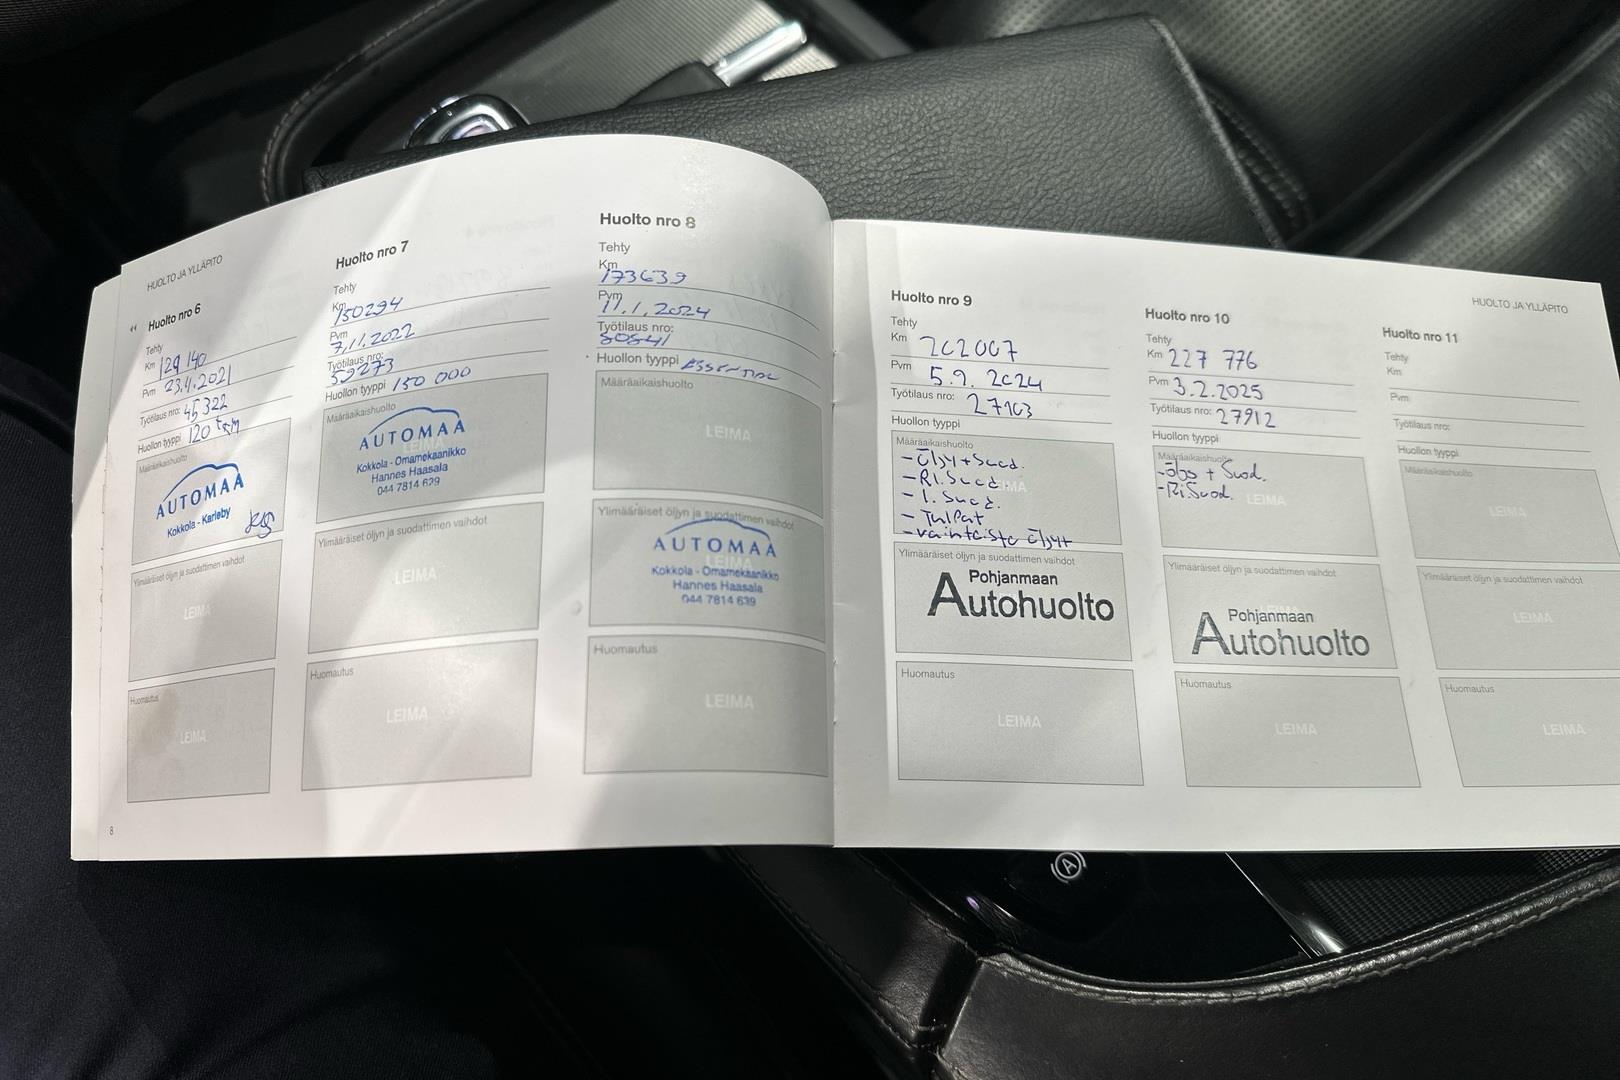 HUOLTO JA YLLÄPITO
Huolto nro 6
Tehty
Km 129 140
Pvm 23.4.2021
Työtilaus nro: 45322
Huollon tyyppi 120 tkm
Määräaikaishuolto
AUTOMAA
Kokkola - Karleby
Ylimääräiset öljyn ja suodattimen vaihdot
LEIMA
Huomautus
LEIMA
8
Huolto nro 7
Tehty
Km 150294
Pvm 7.11.2022
Työtilaus nro: 59273
Huollon tyyppi 150 000
Määräaikaishuolto
AUTOMAA
Kokkola - Omamekaanikko
Hannes Haasala
044 7814 639
Ylimääräiset öljyn ja suodattimen vaihdot
LEIMA
Huomautus
LEIMA
Huolto nro 8
Tehty
Km 173639
Pvm 11.1.2024
Työtilaus nro: 80841
Huollon tyyppi ESSENTIAL
Määräaikaishuolto
LEIMA
Ylimääräiset öljyn ja suodattimen vaihdot
AUTOMAA
Kokkola - Omamekaanikko
Hannes Haasala
044 7814 639
Huomautus
LEIMA
HUOLTO JA YLLÄPITO
Huolto nro 9
Tehty
Km 202007
Pvm 5.9.2024
Työtilaus nro: 27103
Huollon tyyppi
Määräaikaishuolto
- Öljy + Suod.
- Ri. Suod.
- I. Suod.
- Tulpat
- vaihteisto öljyt
Ylimääräiset öljyn ja suodattimen vaihdot
Pohjanmaan
Autohuolto
Huomautus
LEIMA
Huolto nro 10
Tehty
Km 227 776
Pvm 3.2.2025
Työtilaus nro: 27912
Huollon tyyppi
Määräaikaishuolto
+ Suod.
- Ri Suod.
LEIMA
Ylimääräiset öljyn ja suodattimen vaihdot
Pohjanmaan
Autohuolto
Huomautus
LEIMA
Huolto nro 11
Tehty
Km
Pvm
Työtilaus nro:
Huollon tyyppi
Määräaikaishuolto
LEIMA
Ylimääräiset öljyn ja suodattimen vaihdot
LEIMA
Huomautus
LEIMA
A